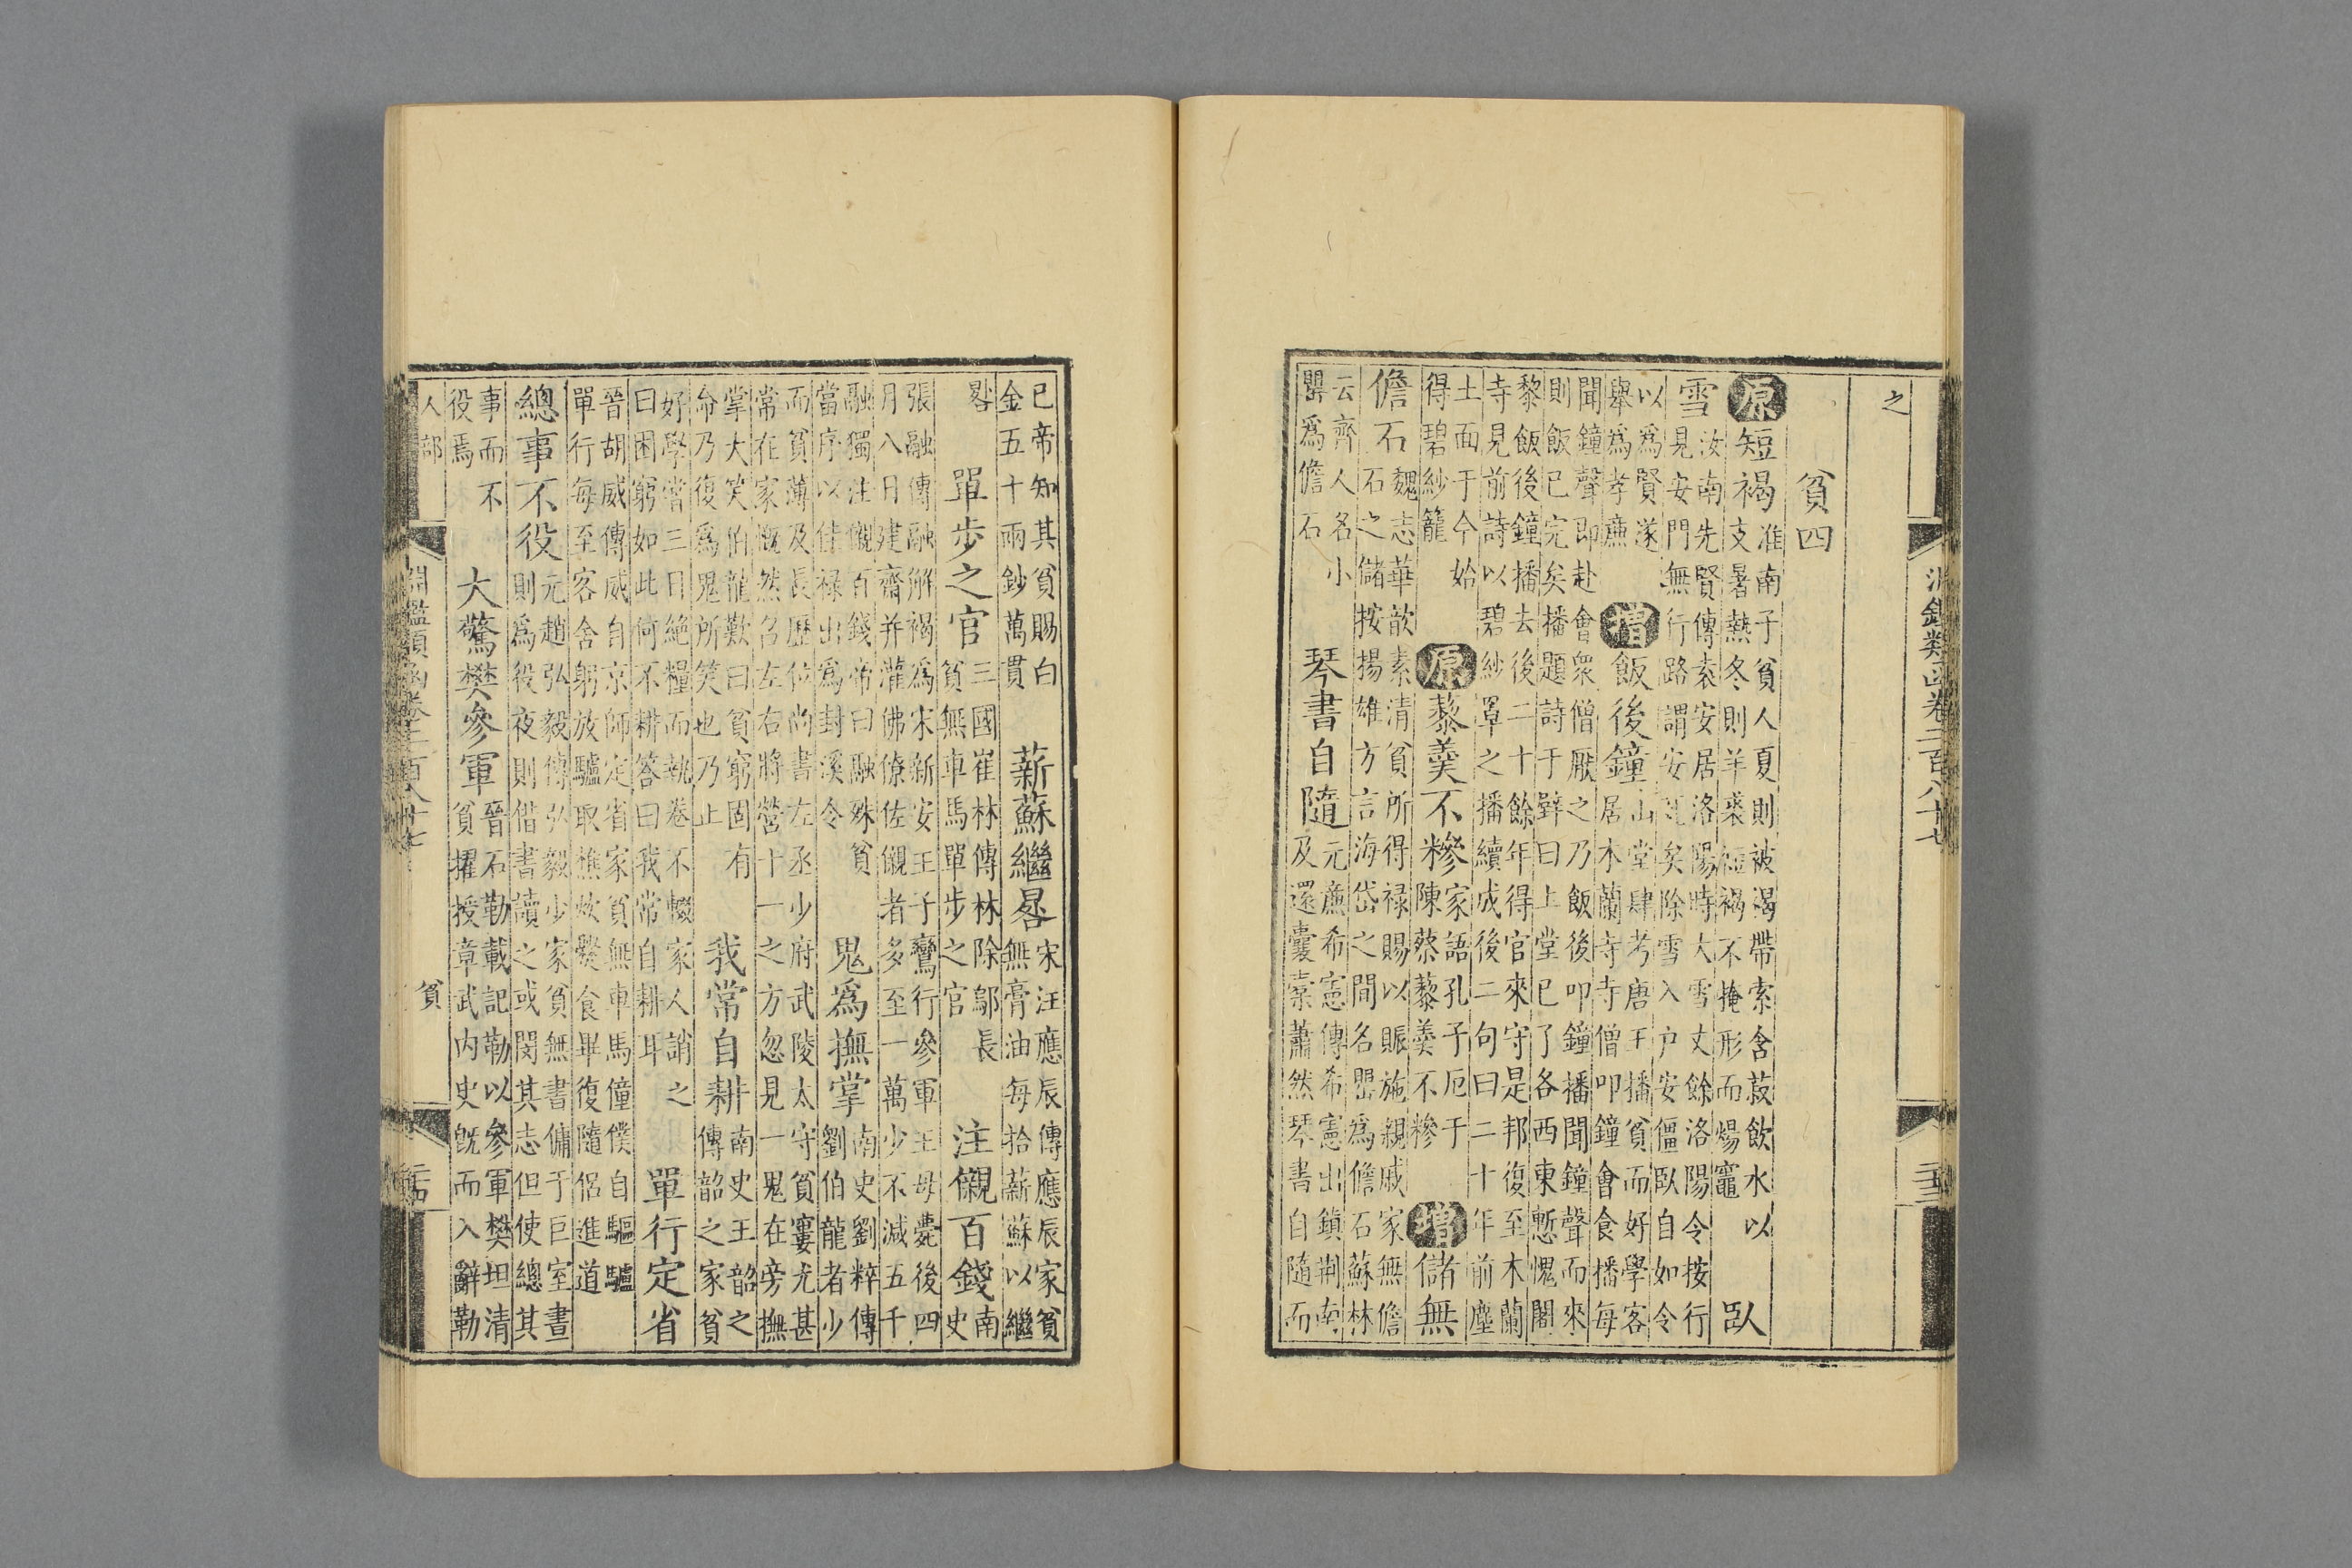 淵鑑類函卷二百八十七
二十三
之
貧四
原短褐
淮南子貧人夏則被褐帶索含菽飲水以
支暑熱冬則羊裘短褐不掩形而煬竈
臥
雪
汝南先賢傳袁安居洛陽時大雪丈餘洛陽令按行
見安門無行路謂安死矣除雪入戶安僵臥自如令
以爲賢遂
舉爲孝廉
增飯後鐘
山堂肆考唐王播貧而好學客
居木蘭寺寺僧叩鐘會食播每
聞鐘聲即赴會衆僧厭之乃飯後叩鐘播聞鐘聲而來
則飯已完矣播題詩于壁曰上堂已了各西東慙愧闍
黎飯後鐘播去後二十餘年得官來守是邦復至木蘭
寺見前詩以碧紗罩之播續成後二句曰二十年前塵
土面于今始
得碧紗籠
原藜羹不糝
家語孔子厄于
陳蔡藜羹不糝
增儲無
儋石
魏志華歆素清貧所得祿賜以賑施親戚家無儋
石之儲按揚雄方言海岱之間名罌爲儋石蘇林
云齊人名小
罌爲儋石
琴書自隨
元廉希憲傳希憲出鎮荆南
及還囊橐蕭然琴書自隨而
已帝知其貧賜白
金五十兩鈔萬貫
薪蘇繼晷
宋汪應辰傳應辰家貧
無膏油每拾薪蘇以繼
晷
單步之官
三國崔林傳林除鄔長
貧無車馬單步之官
注儭百錢
南
史
張融傳融解褐爲宋新安王子鸞行參軍王母薨後四
月八日建齋并灌佛僚佐儭者多至一萬少不減五千
融獨注儭百錢帝曰融殊貧
當序以佳祿出爲封溪令
鬼爲撫掌
南史劉粹傳
劉伯龍者少
而貧薄及長歷位尚書左丞少府武陵太守貧窶尤甚
常在家慨然召左右將營十一之方忽見一鬼在旁撫
掌大笑伯龍歎曰貧窮固有
命乃復爲鬼所笑也乃止
我常自耕
南史王韶之
傳韶之家貧
好學嘗三日絕糧而執卷不輟家人誚之
曰困窮如此何不耕答曰我常自耕耳
單行定省
晉胡威傳威自京師定省家貧無車馬僮僕自驅驢
單行每至客舍躬放驢取樵炊爨食畢復隨侶進道
總事不役
元趙弘毅傳弘毅少家貧無書傭于巨室晝
則爲役夜則借書讀之或閔其志但使總其
事而不
役焉
大驚樊參軍
晉石勒載記勒以參軍樊坦清
貧擢授章武内史既而入辭勒
人部
淵鑑類函卷二百八十七
貧
二十四